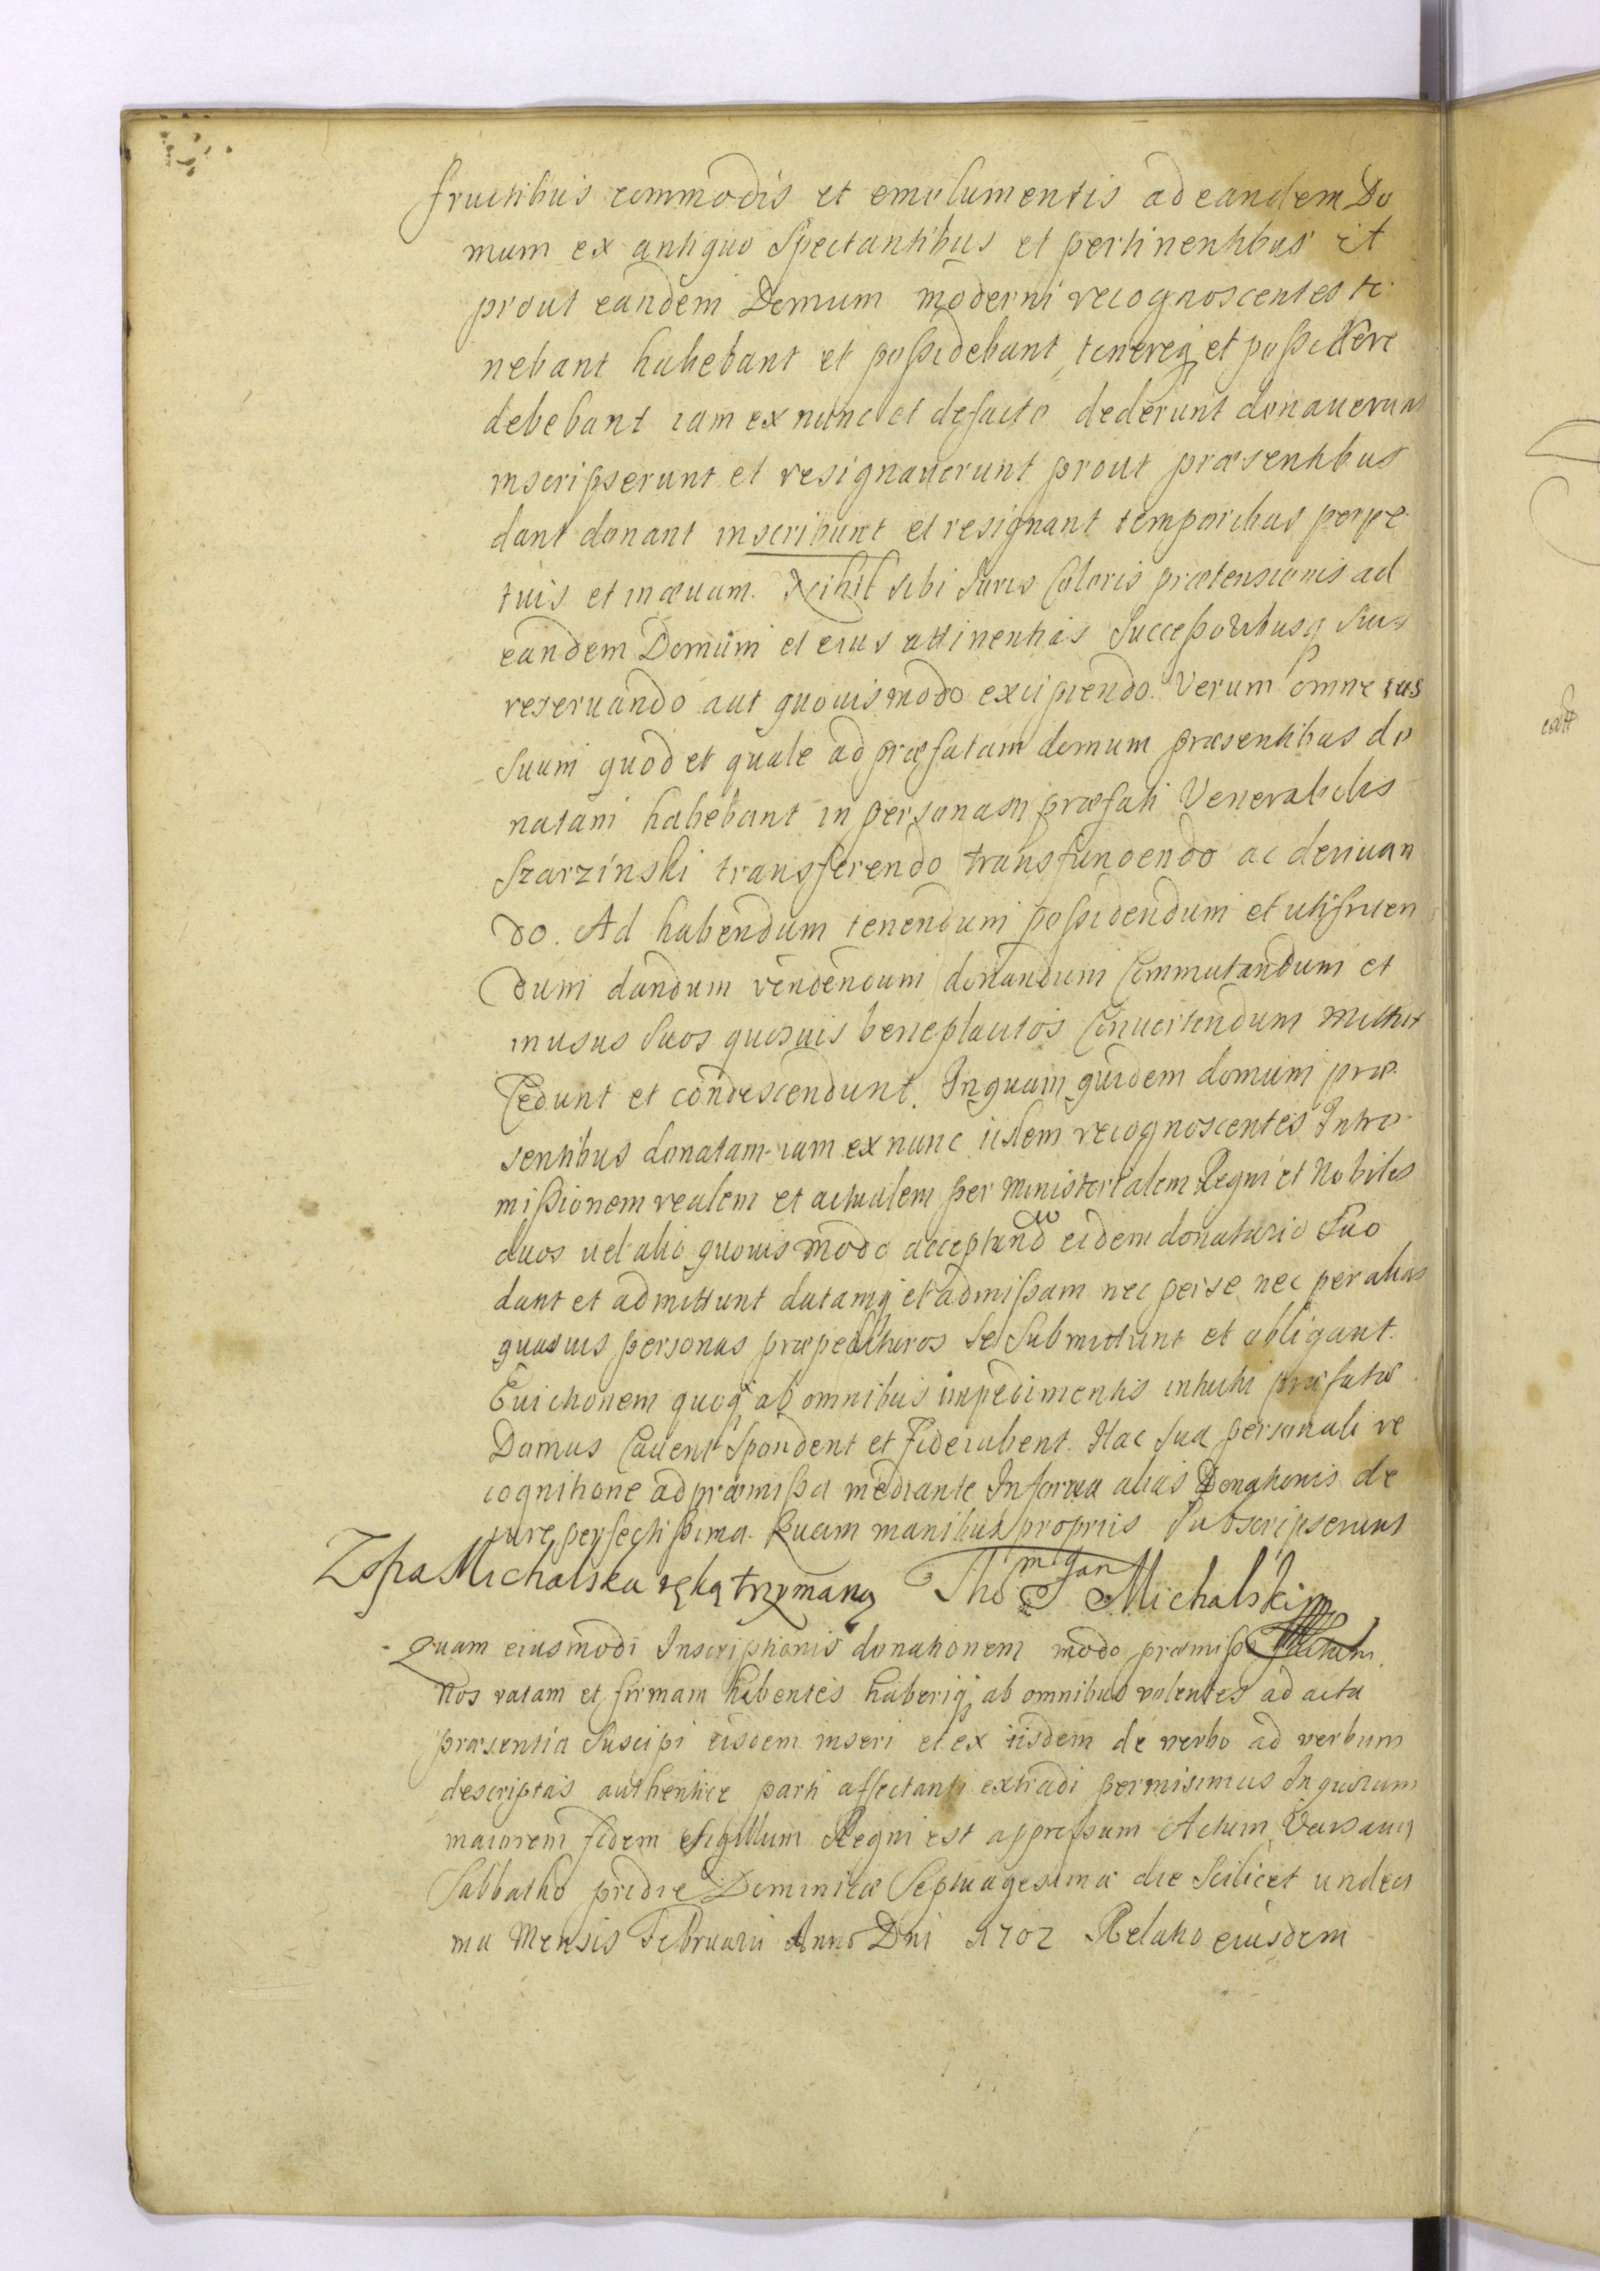 fructibus commodis et emolumentis ad eandem Do
mum ex antiquo Spectantibus et pertinentibus et
prout eandem Domum moderni recognoscentes te
nebant habebant et possidebant, tenereq et possidere
debebant iam ex nunc et defacto dederunt donauerunt
inscripserunt et resignauerunt prout præsentibus
dant donant inscribunt et resignant temporibus perpe
tuis et inæuum. Nihil sibi Juris Coloris prætensionis ad
eandem Domum et eius attinentias Successoribusq suis
reseruando aut quouismodo excipiendo. Verum omne ius
Suum quod et quale ad præfatam domum præsentibus do
natam habebant in personam præfati Venerabilis
Szarzinski transferendo transfundendo ac deriuan
do. Ad habendum tenendum possidendum et utifruen
dum dandum vendendum donandum Commutandum et
inusus Suos quosuis beneplacitos Conuertendum
Cedunt et condescendunt. Inquam quidem domum præ
sentibus donatam iam ex nunc iidem recognoscentes Intro
missionem realem et actualem per Ministerialem Regni et Nobiles
duos uel alio quouis modo acceptando eidem donatario Suo
dant et admittunt datamq et admissam nec per se nec per alias
quasuis personas præpedituros se Submittunt et obligant.
Euictionem quoq ab omnibus impedimentis intuitu præfatæ
Domus Cauent Spondent et Fideiubent. Hac sua personali re
cognitione ad præmissa mediante Informa alias Donationis de
iure perfectissima. Quam manibus propriis Subscripserunt
Zofia Michalska ręką trzymaną Tho Jan Michalski mp
Quam eiusmodi Inscriptionis donationem modo præmisso factam
Nos ratam et firmam habentes haberiq ab omnibus volentes ad acta
præsentia Suscipi eisdem inseri et ex iisdem de verbo ad verbum
descriptas authentice parti affectanti extradi permisimus Inquorum
maiorem fidem Sigillum Regni est appressum Actum Varsauiæ
Sabbatho pridie Dominicæ Septuagesimæ die Scilicet undeci
ma Mensis Februarii Anno Dni 1702 Relatio eiusdem